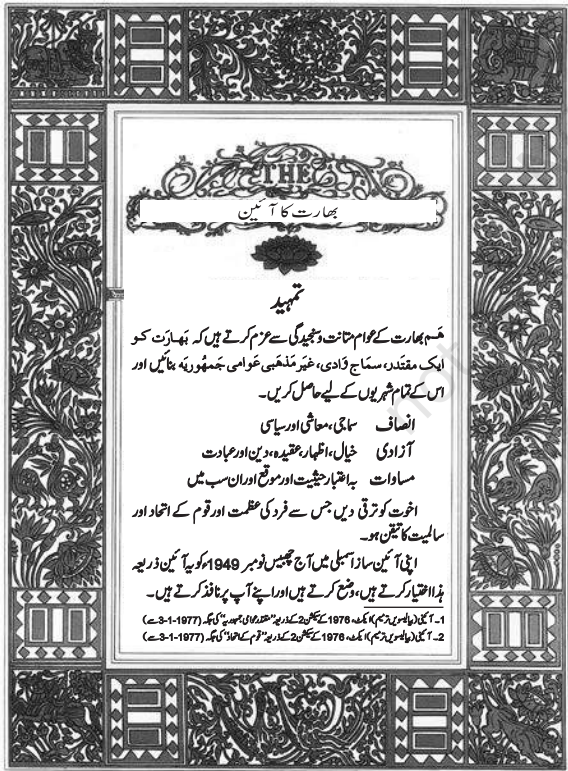 THE
بھارت کا آئین
تمہید
ہم بھارت کے عوام متانت و سنجیدگی سے عزم کرتے ہیں کہ بھارت کو
ایک مقتدر، سماج وادی، غیر مذہبی عوامی جمہوریہ بنائیں اور
اس کے تمام شہریوں کے لیے حاصل کریں۔
انصاف سماجی، معاشی اور سیاسی
آزادی خیال، اظہار، عقیدہ، دین اور عبادت
مساوات بہ اعتبار حیثیت اور موقع اور ان سب میں
اخوت کو ترقی دیں جس سے فرد کی عظمت اور قوم کے اتحاد اور
سالمیت کا تیقن ہو۔
اپنی آئین ساز اسمبلی میں آج چھبیس نومبر 1949ء کو یہ آئین ذریعہ
ہذا اختیار کرتے ہیں، وضع کرتے ہیں اور اپنے آپ پر نافذ کرتے ہیں۔
1۔ آئینی (بیالیسویں ترمیم) ایکٹ، 1976 کے سیکشن 2 کے ذریعہ "مقتدر عوامی جمہوریہ" کی جگہ (3-1-1977 سے)
2۔ آئینی (بیالیسویں ترمیم) ایکٹ، 1976 کے سیکشن 2 کے ذریعہ "قوم کے اتحاد" کی جگہ (3-1-1977 سے)
not